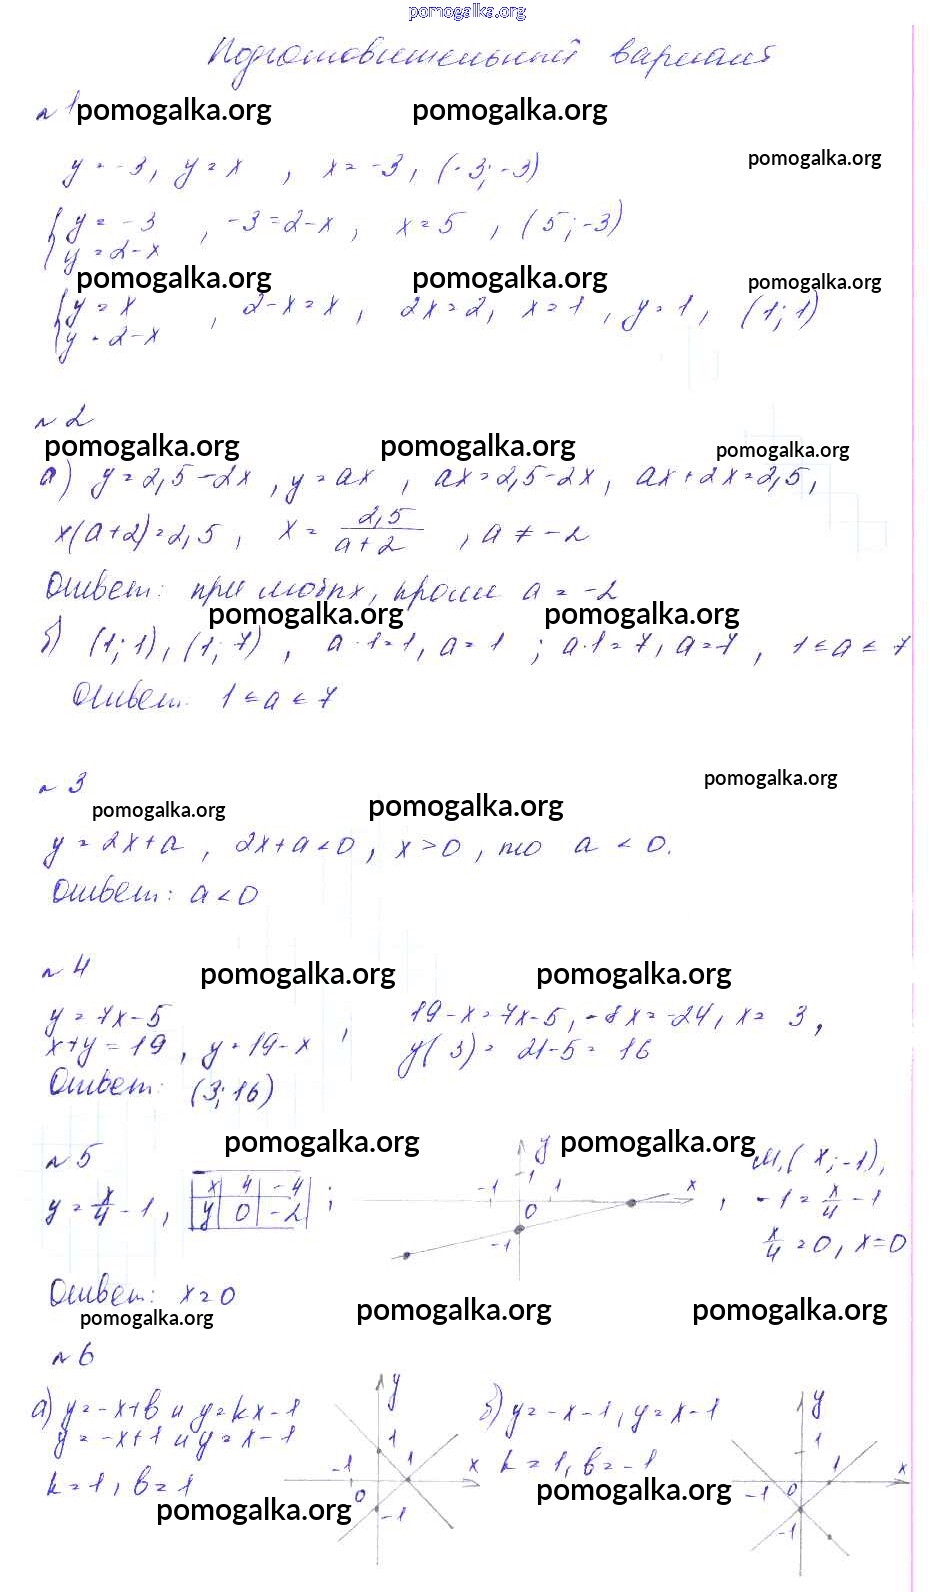 pomogalka.org
Подготовительный вариант
№ 1 pomogalka.org pomogalka.org
pomogalka.org
y = -3, y = x , x = -3, (-3; -3)
{ y = -3 , -3 = 2-x, x = 5 , (5; -3)
y = 2-x
pomogalka.org pomogalka.org pomogalka.org
{ y = x , 2-x = x , 2x = 2, x = 1 , y = 1 , (1; 1)
y = 2-x
№ 2
pomogalka.org pomogalka.org pomogalka.org
а) y = 2,5-2x , y = ax , ax = 2,5-2x, ax+2x = 2,5,
x(a+2) = 2,5 , x = 2,5/(a+2) , a ≠ -2
Ответ: при любых, кроме a = -2
pomogalka.org pomogalka.org
б) (1; 1), (1; 7) , a·1 = 1, a = 1 ; a·1 = 7, a = 7 , 1 ≤ a ≤ 7
Ответ. 1 ≤ a ≤ 7
№ 3 pomogalka.org
pomogalka.org pomogalka.org
y = 2x+a , 2x+a < 0, x > 0, то a < 0.
Ответ: a < 0
№ 4 pomogalka.org pomogalka.org
y = 7x-5 , 19-x = 7x-5, -8x = -24, x = 3,
x+y = 19 , y = 19-x y(3) = 21-5 = 16
Ответ: (3; 16)
pomogalka.org pomogalka.org
№ 5 y M₁( x; -1),
y = x/4 - 1 , x 4 -4 ; -1 1 1 x , -1 = x/4 - 1
y 0 -2 0 -1 x/4 = 0, x = 0
Ответ: x = 0
pomogalka.org pomogalka.org pomogalka.org
№ 6
а) y = -x+b и y = kx-1 y б) y = -x-1, y = x-1 y
y = -x+1 и y = x-1 1 1
k = 1, b = 1 -1 1 x k = 1, b = -1 1 x
pomogalka.org 0 -1 pomogalka.org -1 0 -1